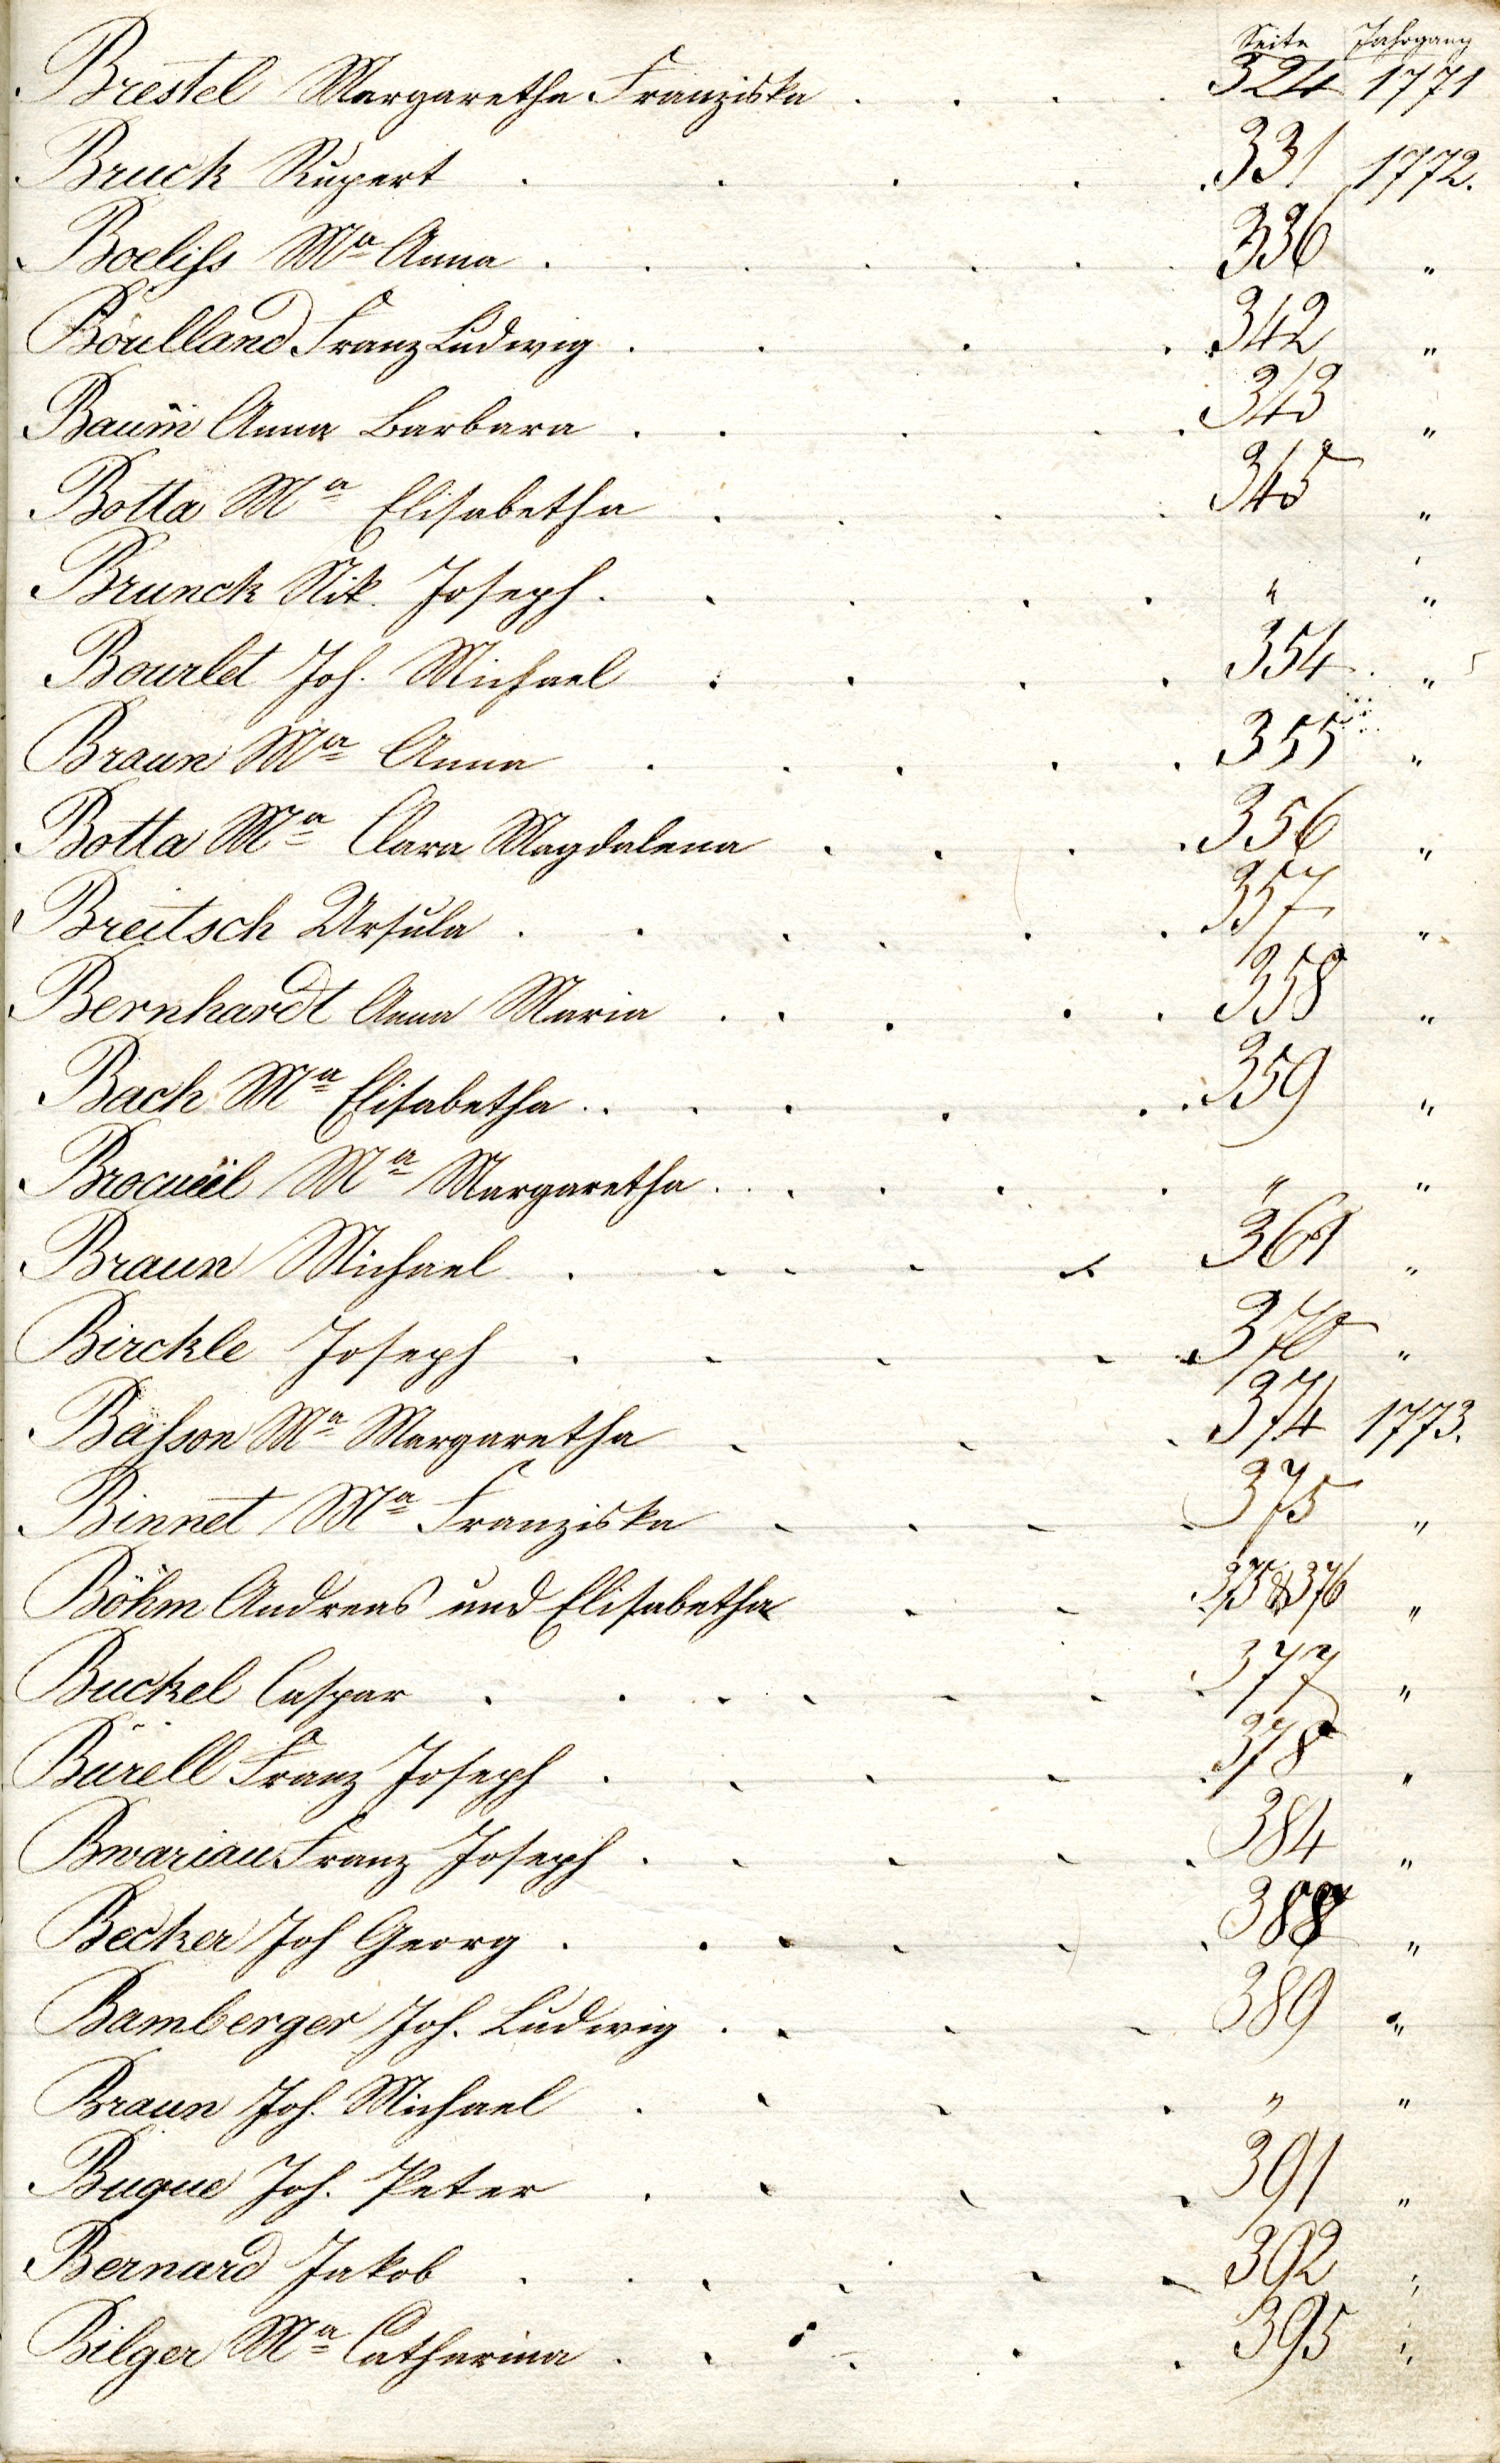 Seite Jahrgang
Brestel Margaretha Franziska . . . . 324 1771
Bruck Rupert . . . . . 331 1772.
Boeliss Ma Anna . . . . . . 336 "
Boulland Franz Ludwig . . . . 342 "
Baum Anna Barbara . . . . . 343 "
Botta Ma Elisabetha . . . . 345 "
Brunck Nik. Joseph . . . . . " "
Bourlet Joh. Michael . . . . 354 "
Braun Ma Anna . . . . . 355 "
Botta Ma Clara Magdalena . . . . 356 "
Breitsch Ursula . . . . . . 357 "
Bernhardt Anna Maria . . . . . 358 "
Bach Ma Elisabetha . . . . . . 359 "
Ma Margaretha . . . . . " "
Braun Michael . . . . . 361 "
Birckle Joseph . . . . . 370 "
Basson Ma Margaretha . . . 374 1773.
Binnet Ma Franziska . . . . 375 "
Böhm Andreas und Elisabetha . . 375 & 376 "
Buckel Caspar . . . . . . 377 "
Bürell Franz Joseph . . . . . 378 "
Bwariau Franz Joseph . . . . . 384 "
Becker Joh Georg . . . . . . 388 "
Bamberger Joh. Ludwig . . . . 389 "
Braun Joh. Michael . . . . " "
Buque Joh. Peter . . . . 391 "
Bernard Jakob . . . . . . 392 "
Bilger Ma Catharina . . . . . 395 "